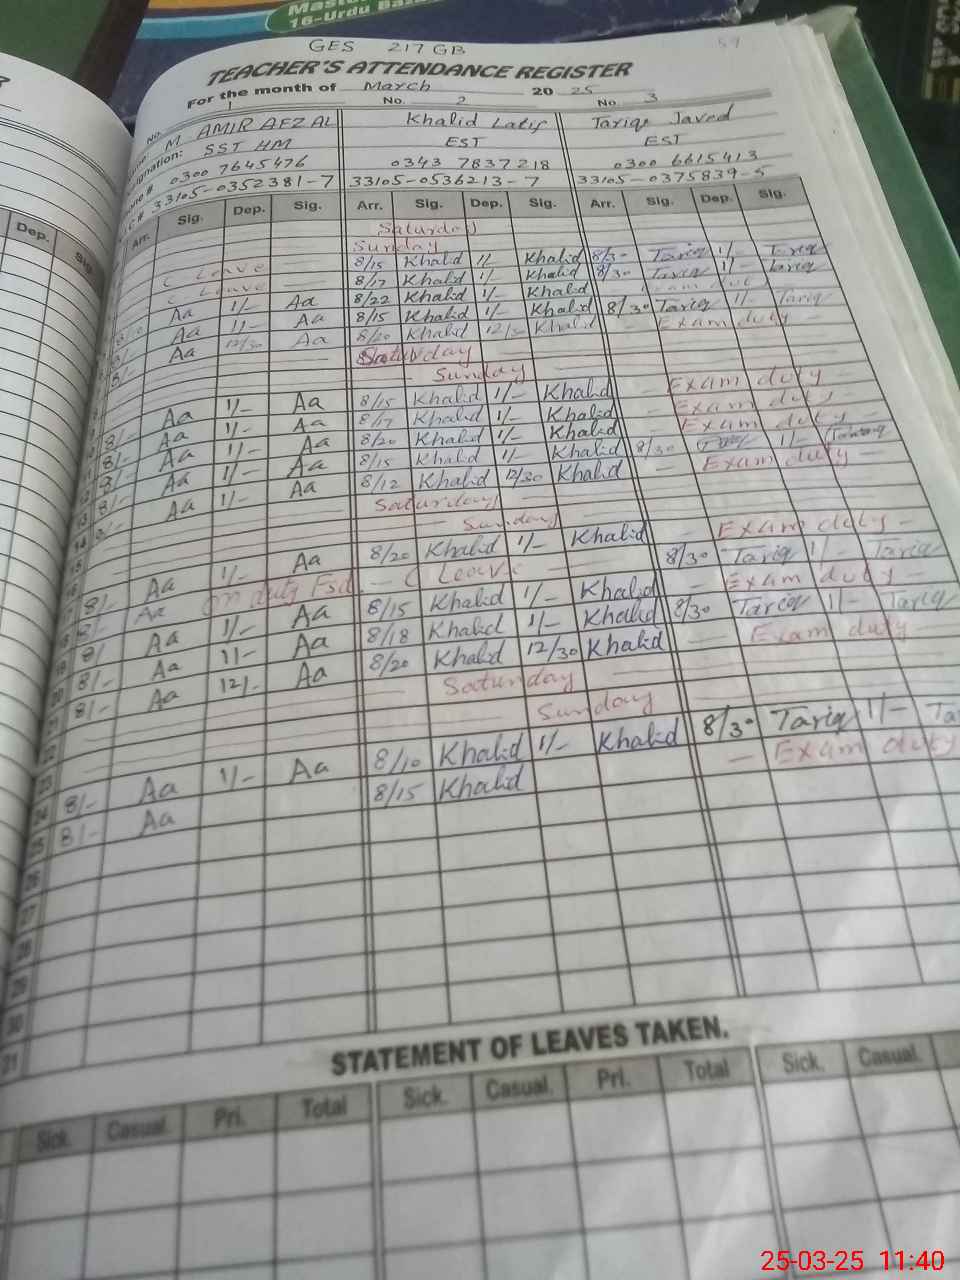 16-Urdu
GES 217 GB
59
TEACHER'S ATTENDANCE REGISTER
For the month of March 20 25
No. 1 No. 2 No. 3
M AMIR AFZAL Khalid Latif Tariq Javed
SST HM EST EST
0300 7645476 0343 7837218 0300 6615413
33105-0352381-7 33105-0536213-7 33105-0375839-5
Dep. Sig. Arr. Sig. Dep. Sig. Arr. Sig. Dep. Sig. Arr. Sig. Dep. Sig.
Saturday
Sunday
C Leave 8/15 Khalid 1/- Khalid 8/30 Tariq 1/- Tariq
C Leave 8/17 Khalid 1/- Khalid 8/30 Tariq 1/- Tariq
Aa 1/- Aa 8/22 Khalid 1/- Khalid Exam duty
Aa 1/- Aa 8/15 Khalid 1/- Khalid 8/30 Tariq 1/- Tariq
Aa 12/30 Aa 8/20 Khalid 12/30 Khalid - Exam duty
Saturday
Sunday
8/- Aa 1/- Aa 8/15 Khalid 1/- Khalid - Exam duty -
8/- Aa 1/- Aa 8/17 Khalid 1/- Khalid - Exam duty -
8/- Aa 1/- Aa 8/20 Khalid 1/- Khalid - Exam duty -
8/- Aa 1/- Aa 8/15 Khalid 1/- Khalid 8/30 Tariq 1/- Tariq
8/- Aa 1/- Aa 8/12 Khalid 12/30 Khalid - Exam duty -
Saturday
Sunday
8/- Aa 1/- Aa 8/20 Khalid 1/- Khalid - Exam duty -
8/- Aa On duty Fsd - C Leave - 8/30 Tariq 1/- Tariq
8/- Aa 1/- Aa 8/15 Khalid 1/- Khalid - Exam duty -
8/- Aa 1/- Aa 8/18 Khalid 1/- Khalid 8/30 Tariq 1/- Tariq
8/- Aa 12/- Aa 8/20 Khalid 12/30 Khalid - Exam duty
Saturday
Sunday
24 8/- Aa 1/- Aa 8/10 Khalid 1/- Khalid 8/30 Tariq 1/- Ta
25 8/- Aa 8/15 Khalid - Exam duty
26
27
28
29
30
31
STATEMENT OF LEAVES TAKEN.
Sick. Casual. Pri. Total Sick. Casual. Pri. Total Sick. Casual.
25-03-25 11:40